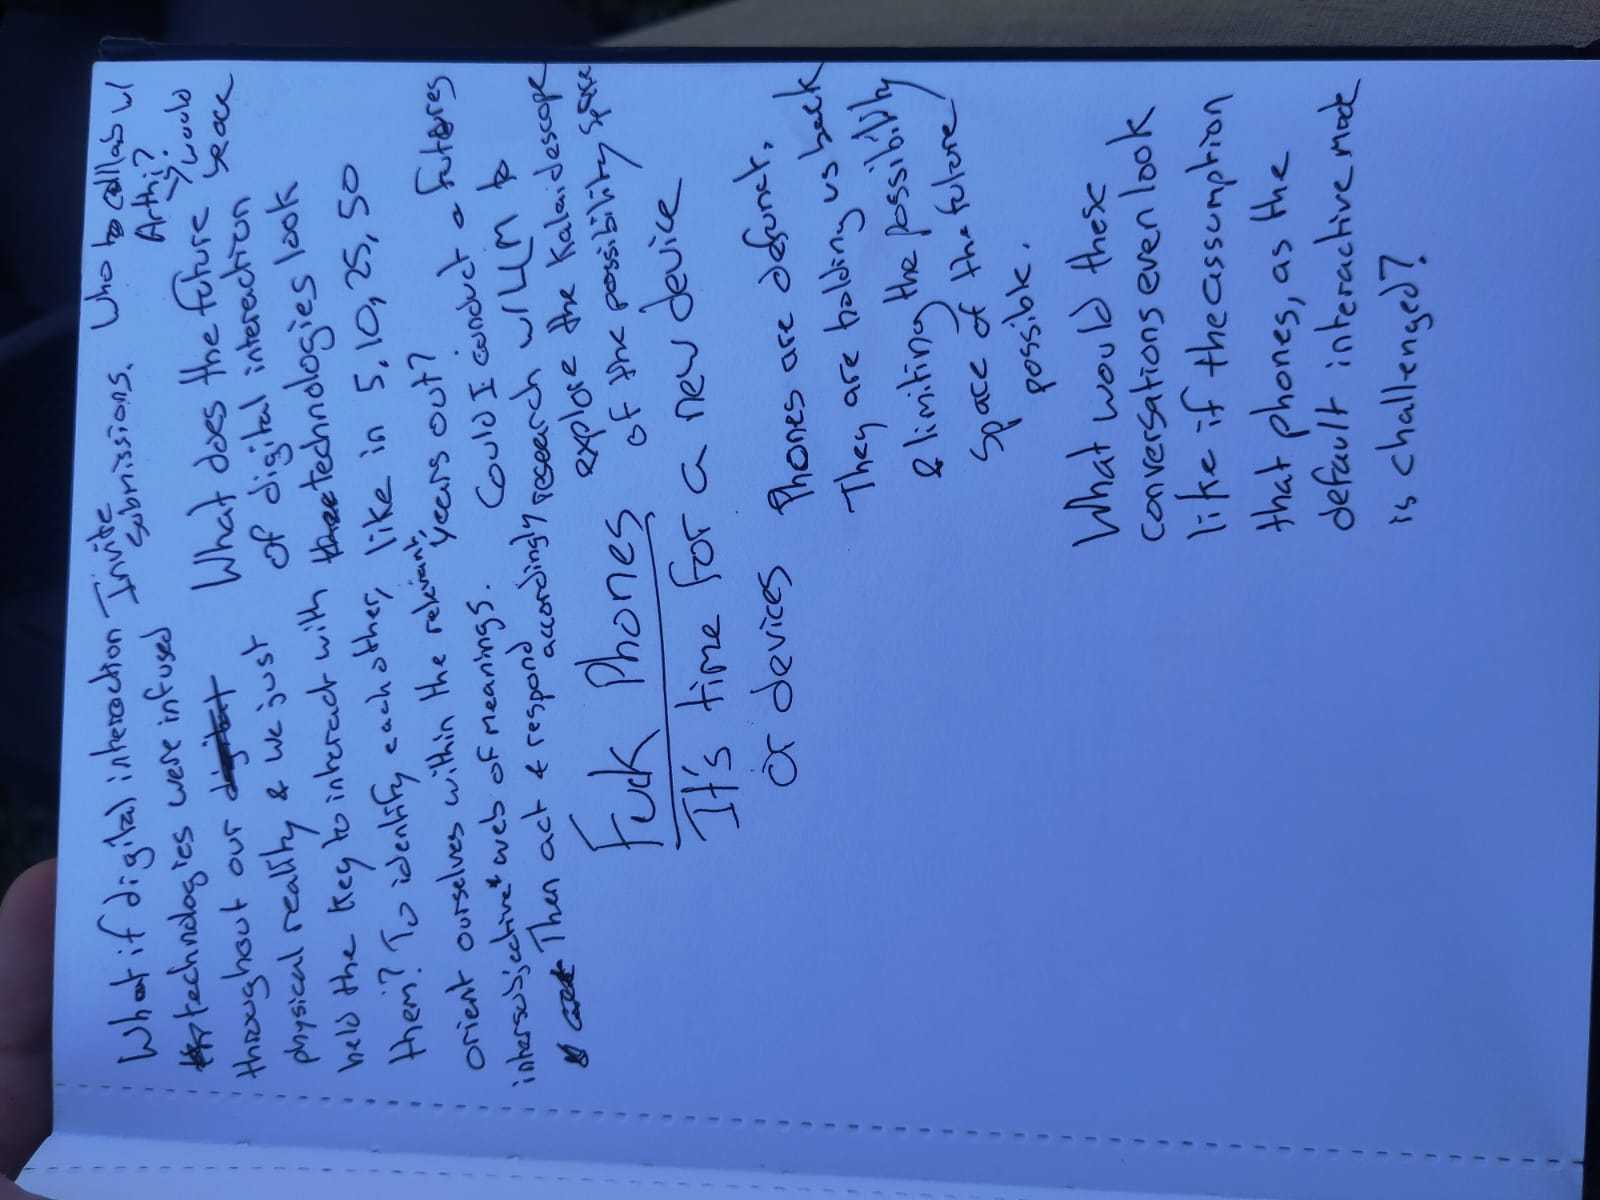 What if digital interaction
technologies were infused
throughout our digital
physical reality & we just
held the key to interact with
them? To identify each other,
orient ourselves within the relevant,
intersubjective webs of meanings.
& act Then act & respond
accordingly
Invite
submissions.
Who to collab w/
Arthi?
→ would
What does the future
space
of digital interaction
technologies look
like in 5, 10, 25, 50
years out?
Could I conduct a futures
research w/ LLM to
explore the kalaidescope
of the possibility space
Fuck Phones
It's time for a new device
or devices
Phones are defunct.
They are holding us back
& limiting the possibility
space of the future
possible.
What would these
conversations even look
like if the assumption
that phones, as the
default interactive mode
is challenged?